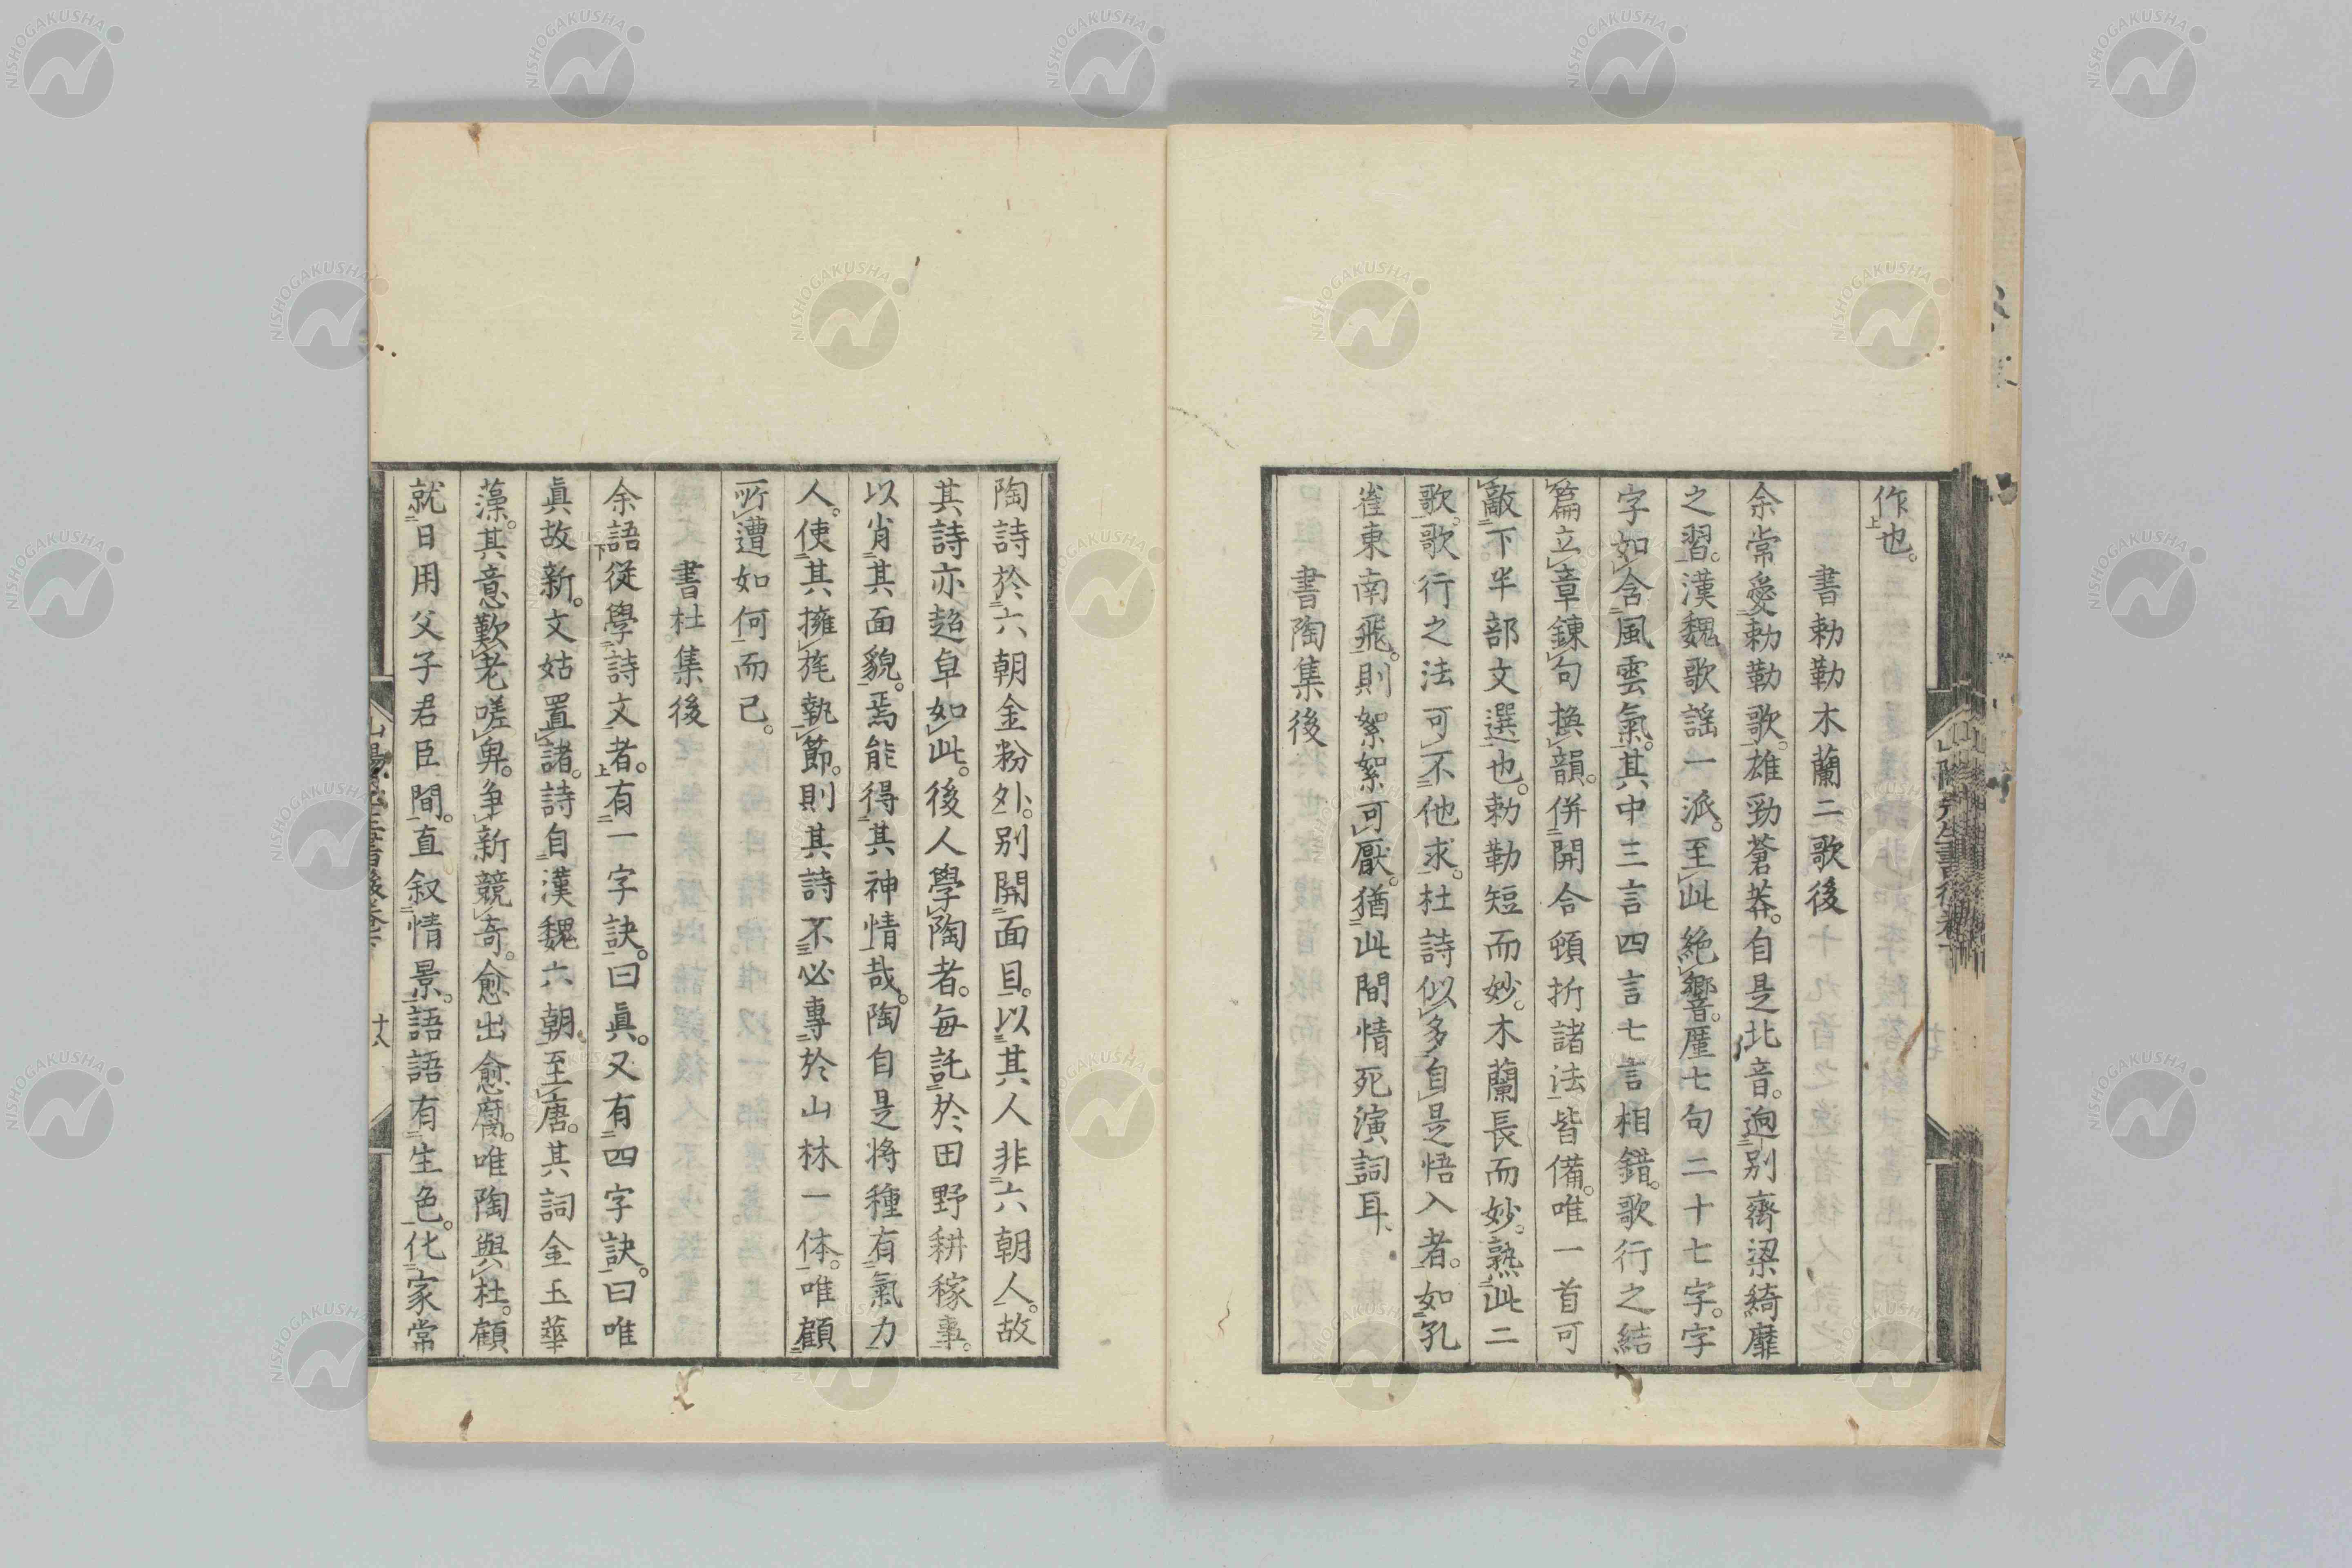 作也。
書勅勒木蘭二歌後
余常愛勅勒歌。雄勁蒼莽。自是北音。逈別齊梁綺靡
之習。漢魏歌謡一派。至此絶響。厪七句二十七字。字
字如含風雲氣。其中三言四言七言相錯。歌行之結
篇立章錬句換韻。併開合頓折諸法皆備。唯一首可
敵下半部文選也。勅勒短而妙。木蘭長而妙。熟此二
歌。歌行之法可不他求。杜詩似多自是悟入者。如孔
雀東南飛。則絮絮可厭。猶此間情死演詞耳。
書陶集後
陶詩於六朝金粉外。別開面目。以其人非六朝人。故
其詩亦超卓如此。後人學陶者。毎託於田野耕稼事。
以肖其面貌。焉能得其神情哉。陶自是將種有氣力
人。使其擁旄執節。則其詩不必專於山林一体。唯顧
所遭如何而已。
書杜集後
余語從學詩文者。有一字訣。曰眞。又有四字訣。曰唯
眞故新。文姑置諸。詩自漢魏六朝至唐。其詞金玉華
藻。其意歎老嗟卑。争新競奇。愈出愈腐。唯陶與杜。顧
就日用父子君臣間。直叙情景。語語有生色。化家常
山陽先生書後卷下
十六
NISHOGAKUSHA